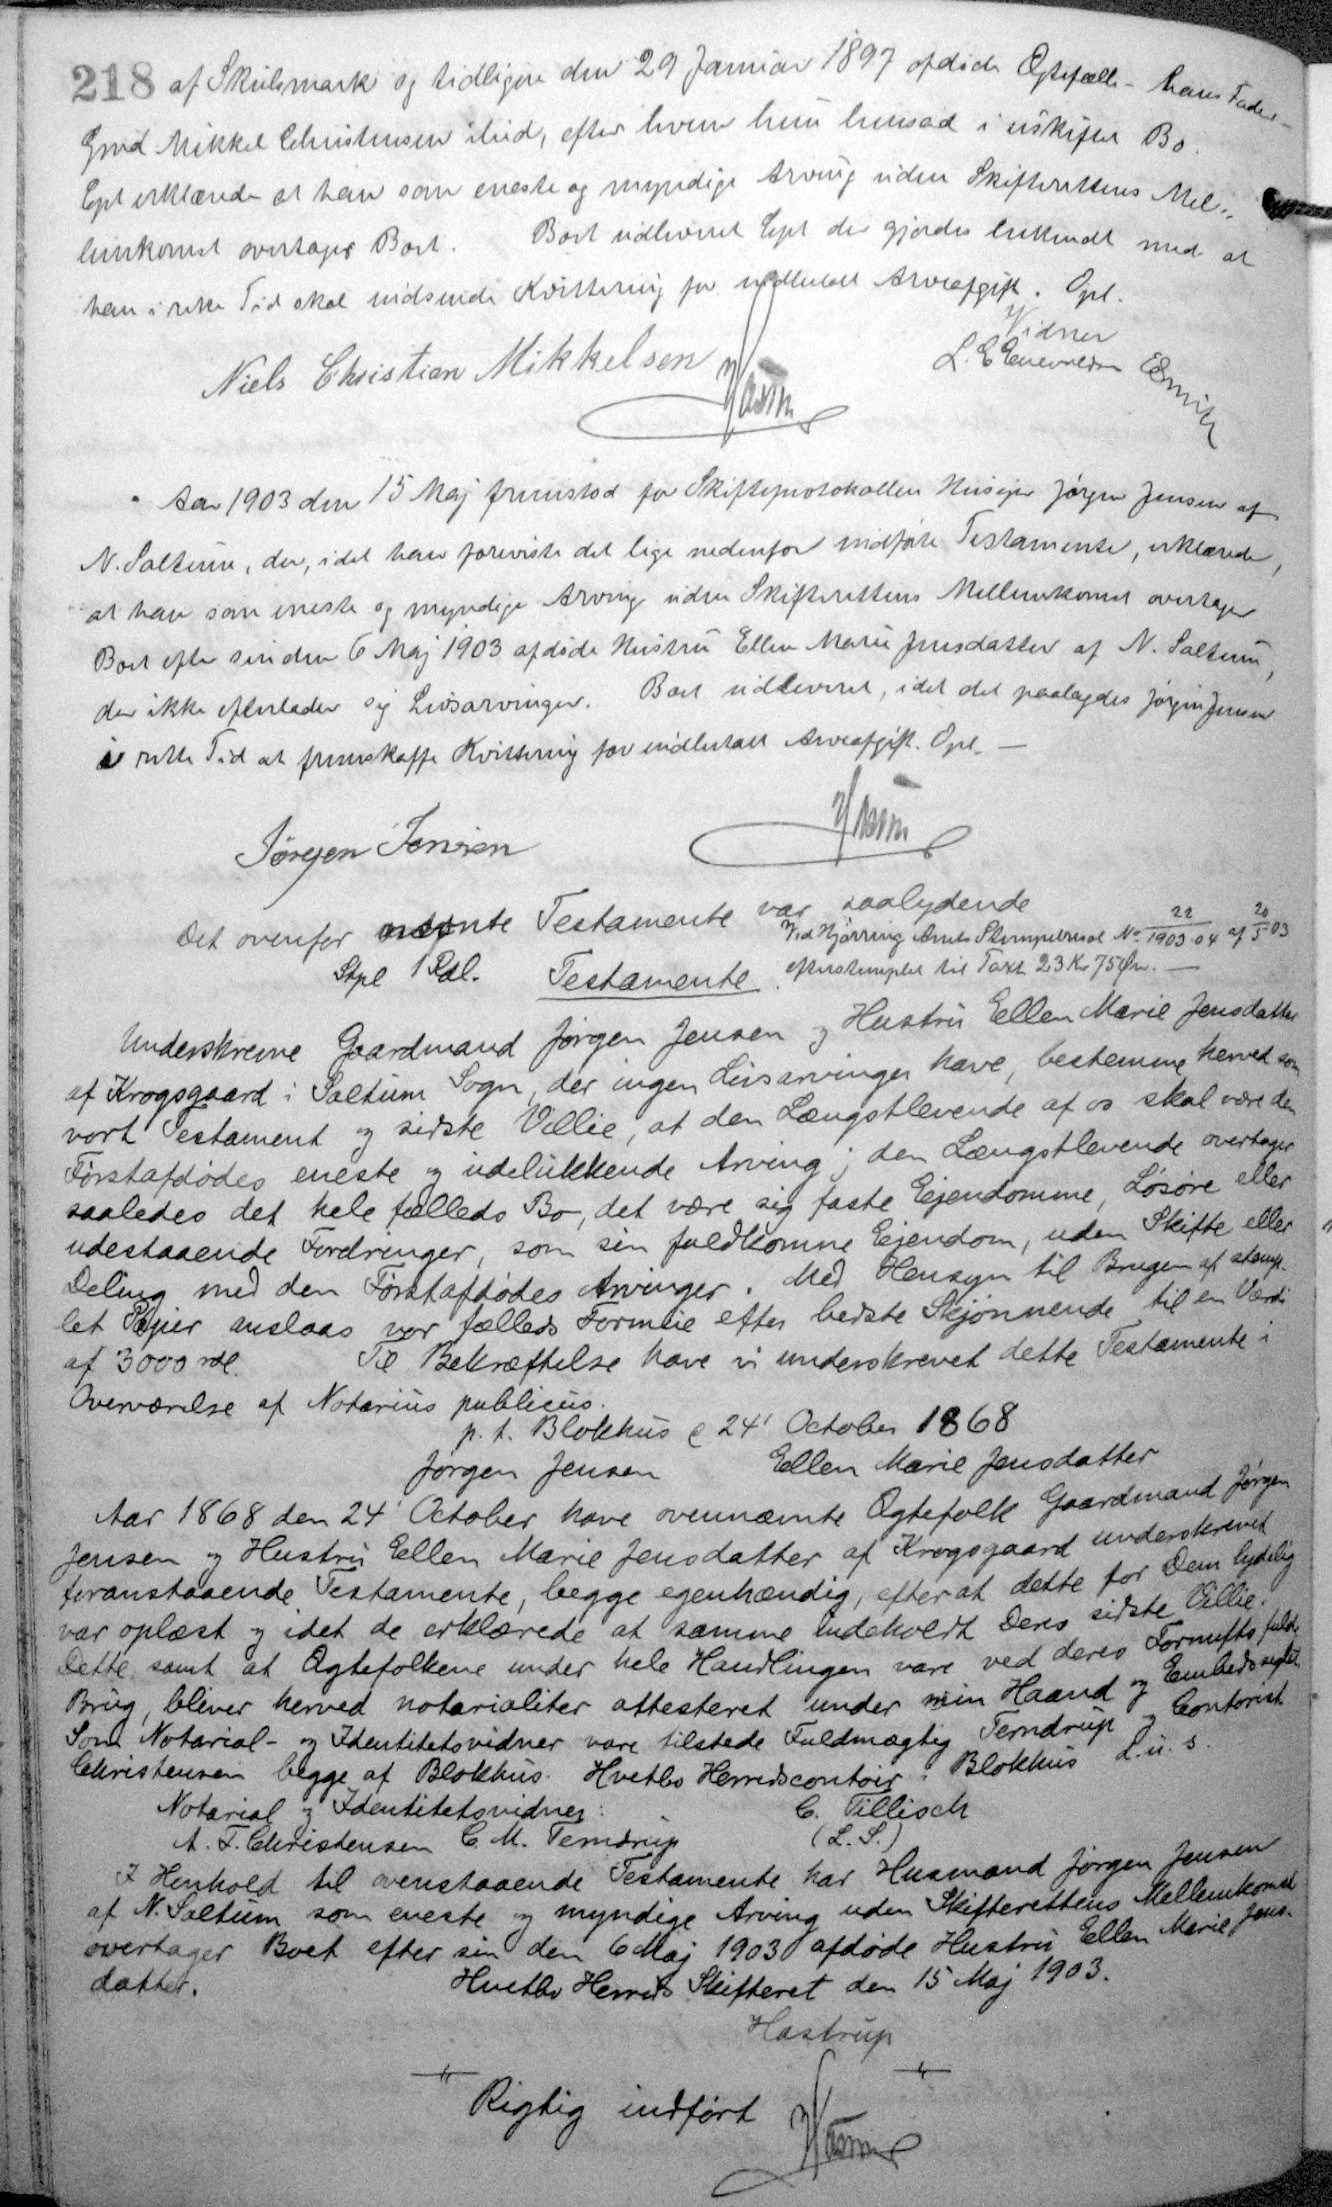 218 af Skulsmark og tidligere den 29 Januar 1897 afdøde Ægtefælle - hans Fader -
Grmd Mikkel Christensen ibid, efter hvem hun hensad i uskiftet Bo.
Cpt erklærede at han som eneste og myndige Arving uden Skifterettens Mel=
lemkomst overtager Boet. Boet udleveret Cpt der gjordes bekendt med at
han i rette Tid skal indsende Kvittering for indbetalt Arveafgift. Opl.
Vidner
Niels Christian Mikkelsen
Aar 1903 den 15 Maj fremstod for Skifteprotokollen Husejer Jørgen Jensen af
N. Saltum, der, idet han foreviste det lige nedenfor indførte Testamente, erklærede,
at han som eneste og myndige Arving uden Skifterettens Mellemkomst overtager
Boet efter sin den 6 Maj 1903 afdøde Hustru Ellen Marie Jensdatter af N. Saltum,
der ikke efterlader sig Livsarvinger. Boet udleveret, idet det paalagdes Jørgen Jensen
i rette Tid at fremskaffe Kvittering for indbetalt Arveafgift. Opl. —
Jørgen Jensen
Det ovenfor nævnte Testamente var saalydende
Ved Hjørring Amts Stempelrevl No 22/1903-04 af 20/5 03
Stpl 1 Rdl. Testamente. efterstemplet til Taxt 23 Kr 75 Øre. —
Underskrevne Gaardmand Jørgen Jensen og Hustru Ellen Marie Jensdatter
af Krogsgaard i Saltum Sogn, der ingen Livsarvinger have, bestemme herved som
vort Testament og sidste Villie, at den Længstlevende af os skal være den
Førstafdødes eneste og udelukkende Arving; den Længstlevende overtager
saaledes det hele fælleds Bo, det være sig faste Ejendomme, Løsøre eller
udestaaende Fordringer, som sin fuldkomne Ejendom, uden Skifte eller
Deling med den Førstafdødes Arvinger. Med Hensyn til Brugen af stemp-
let Papier anslaas vor fælleds Formue efter bedste Skjønnende til en Værdi
af 3000 rdl. Til Bekræftelse have vi underskrevet dette Testamente i
Overværelse af Notarius publicus.
p. t. Blokhus d 24' October 1868
Jørgen Jensen Ellen Marie Jensdatter
Aar 1868 den 24' October have ovennævnte Ægtefolk Gaardmand Jørgen
Jensen og Hustru Ellen Marie Jensdatter af Krogsgaard underskrevet
foranstaaende Testamente, begge egenhændig, efterat dette for Dem lydelig
var oplæst og idet de erklærede at samme indeholdt Deres sidste Villie.
Dette samt at Ægtefolkene under hele Handlingen vare ved deres Fornufts fulde
Brug, bliver herved notarialiter attesteret under min Haand og Embedsseglet.
Som Notarial- og Identitetsvidner vare tilstede Fuldmægtig Terndrup og Contorist
Christensen begge af Blokhus. Hvetbo Herredscontoir i Blokhus d.u.s.
Notarial og Identitetsvidner: C. Tillisch
A. F. Christensen C. M. Terndrup (L. S.)
I Henhold til ovenstaaende Testamente har Husmand Jørgen Jensen
af N. Saltum som eneste og myndige Arving uden Skifterettens Mellemkomst
overtager Boet efter sin den 6 Maj 1903 afdøde Hustru Ellen Marie Jens-
datter. Hvetbo Herreds Skifteret den 15 Maj 1903.
Hastrup
Rigtig indført